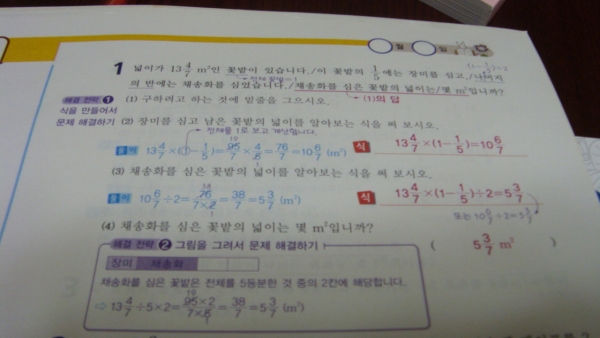 월 일
1 넓이가 13 4/7 m²인 꽃밭이 있습니다. 이 꽃밭의 1/5에는 장미를 심고, 나머지
전체 꽃밭=1
의 반에는 채송화를 심었습니다. 채송화를 심은 꽃밭의 넓이는 몇 m²입니까?
(1)의 답
해결 전략 1 (1) 구하려고 하는 것에 밑줄을 그으시오.
식을 만들어서
문제 해결하기 (2) 장미를 심고 남은 꽃밭의 넓이를 알아보는 식을 써 보시오.
전체를 1로 보고 계산합니다.
풀이 13 4/7×(1-1/5)=95/7×4/5=76/7=10 6/7 (m²) 식 13 4/7×(1-1/5)=10 6/7
(3) 채송화를 심은 꽃밭의 넓이를 알아보는 식을 써 보시오.
풀이 10 6/7÷2=76/7×2=38/7=5 3/7 (m²) 식 13 4/7×(1-1/5)÷2=5 3/7
또는 10 6/7÷2=5 3/7
(4) 채송화를 심은 꽃밭의 넓이는 몇 m²입니까?
( 5 3/7 m² )
해결 전략 2 그림을 그려서 문제 해결하기
장미 채송화
채송화를 심은 꽃밭은 전체를 5등분한 것 중의 2칸에 해당합니다.
⇨ 13 4/7÷5×2=95×2/7×5=38/7=5 3/7 (m²)